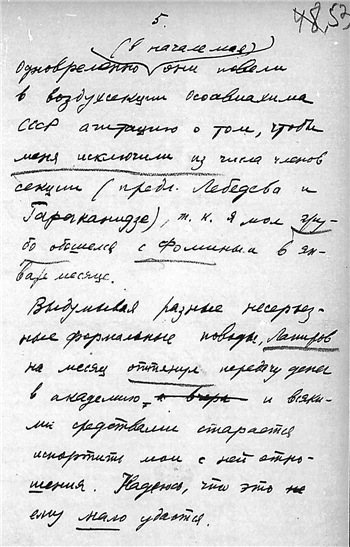 5.
48, 53,
(в начале мая)
Одновременно они повели
в воздухсекции Осоавиахима
СССР агитацию о том, чтобы
меня исключили из числа членов
секции (предл. Лебедева и
), т. к. я мол гру-
бо обошелся с Фоминым в ян-
варе месяце.
Выдумывая разные несерьез-
ные формальные поводы, Лапиров
на месяц оттянул передачу денег
в академию, и всяки-
ми средствами старается
испортить мои с ней отно-
шения. Надеюсь, что это не
ему мало удастся.